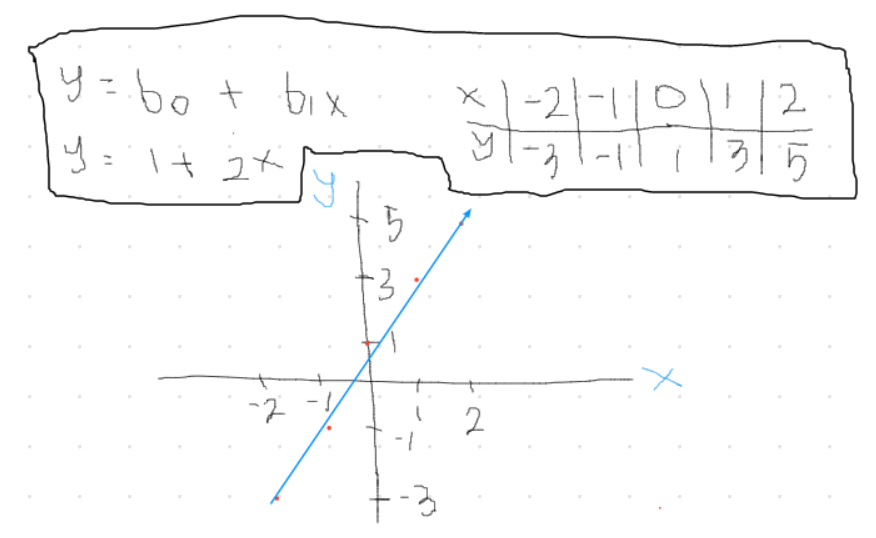 y = b0 + b1x
y = 1 + 2x
x | -2 | -1 | 0 | 1 | 2
y | -3 | -1 | 1 | 3 | 5
y
5
3
1
x
-2 -1 1 2
-1
-3